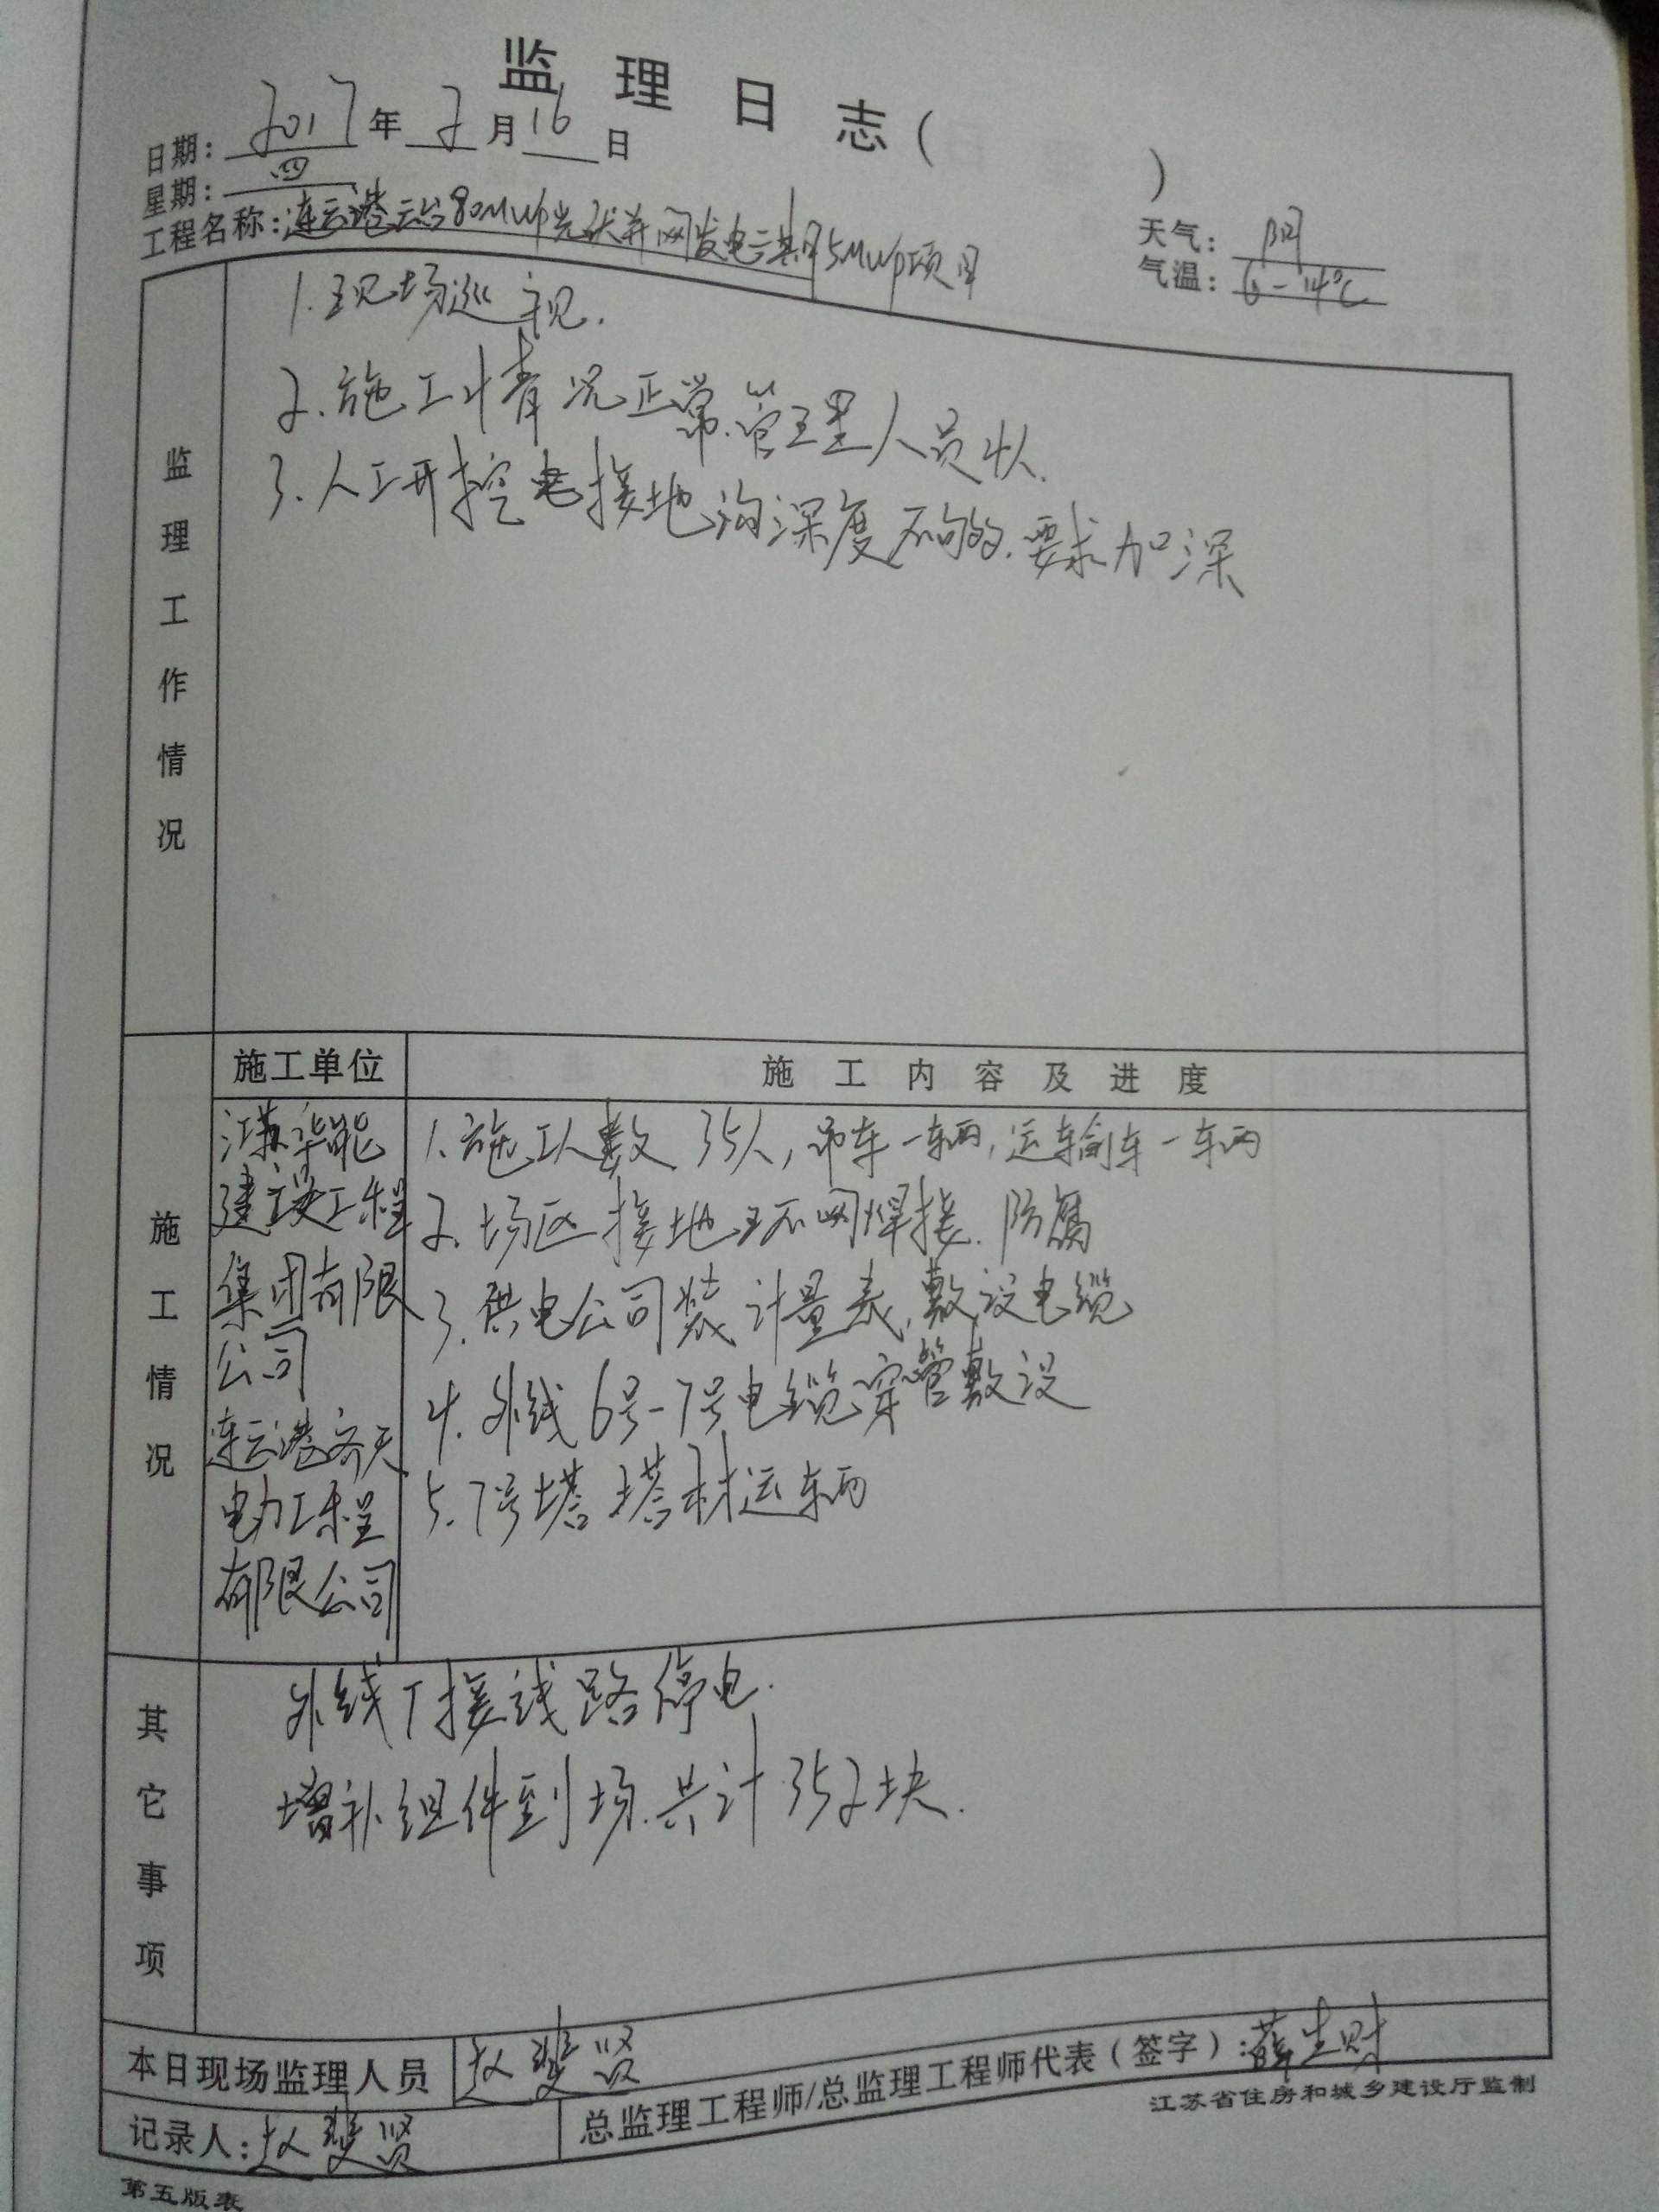 监理日志（ ）
日期：2017年2月16日
星期：四
工程名称：连云港云台80MWp光伏并网发电二期15MWp项目
天气：阴
气温：6-14℃
监理工作情况
1.现场巡视.
2.施工情况正常.管理人员
3.人工开挖接地沟深度不够.要求加深
施工情况
施工单位
施工内容及进度
江苏华能
建设工程
集团有限
公司
连云港齐天
电力工程
有限公司
1.施工人数35人,吊车一辆,运输车一辆
2.场区接地环网焊接.防腐
3.供电公司装计量表,敷设电缆
4.外线6号-7号电缆穿管敷设
5.7号塔塔材运辆
其它事项
外线T接线路停电.
增补组件到场.共计352块.
本日现场监理人员 赵斐贤
总监理工程师/总监理工程师代表（签字）:薛生财
记录人：赵斐贤
江苏省住房和城乡建设厅监制
第五版表